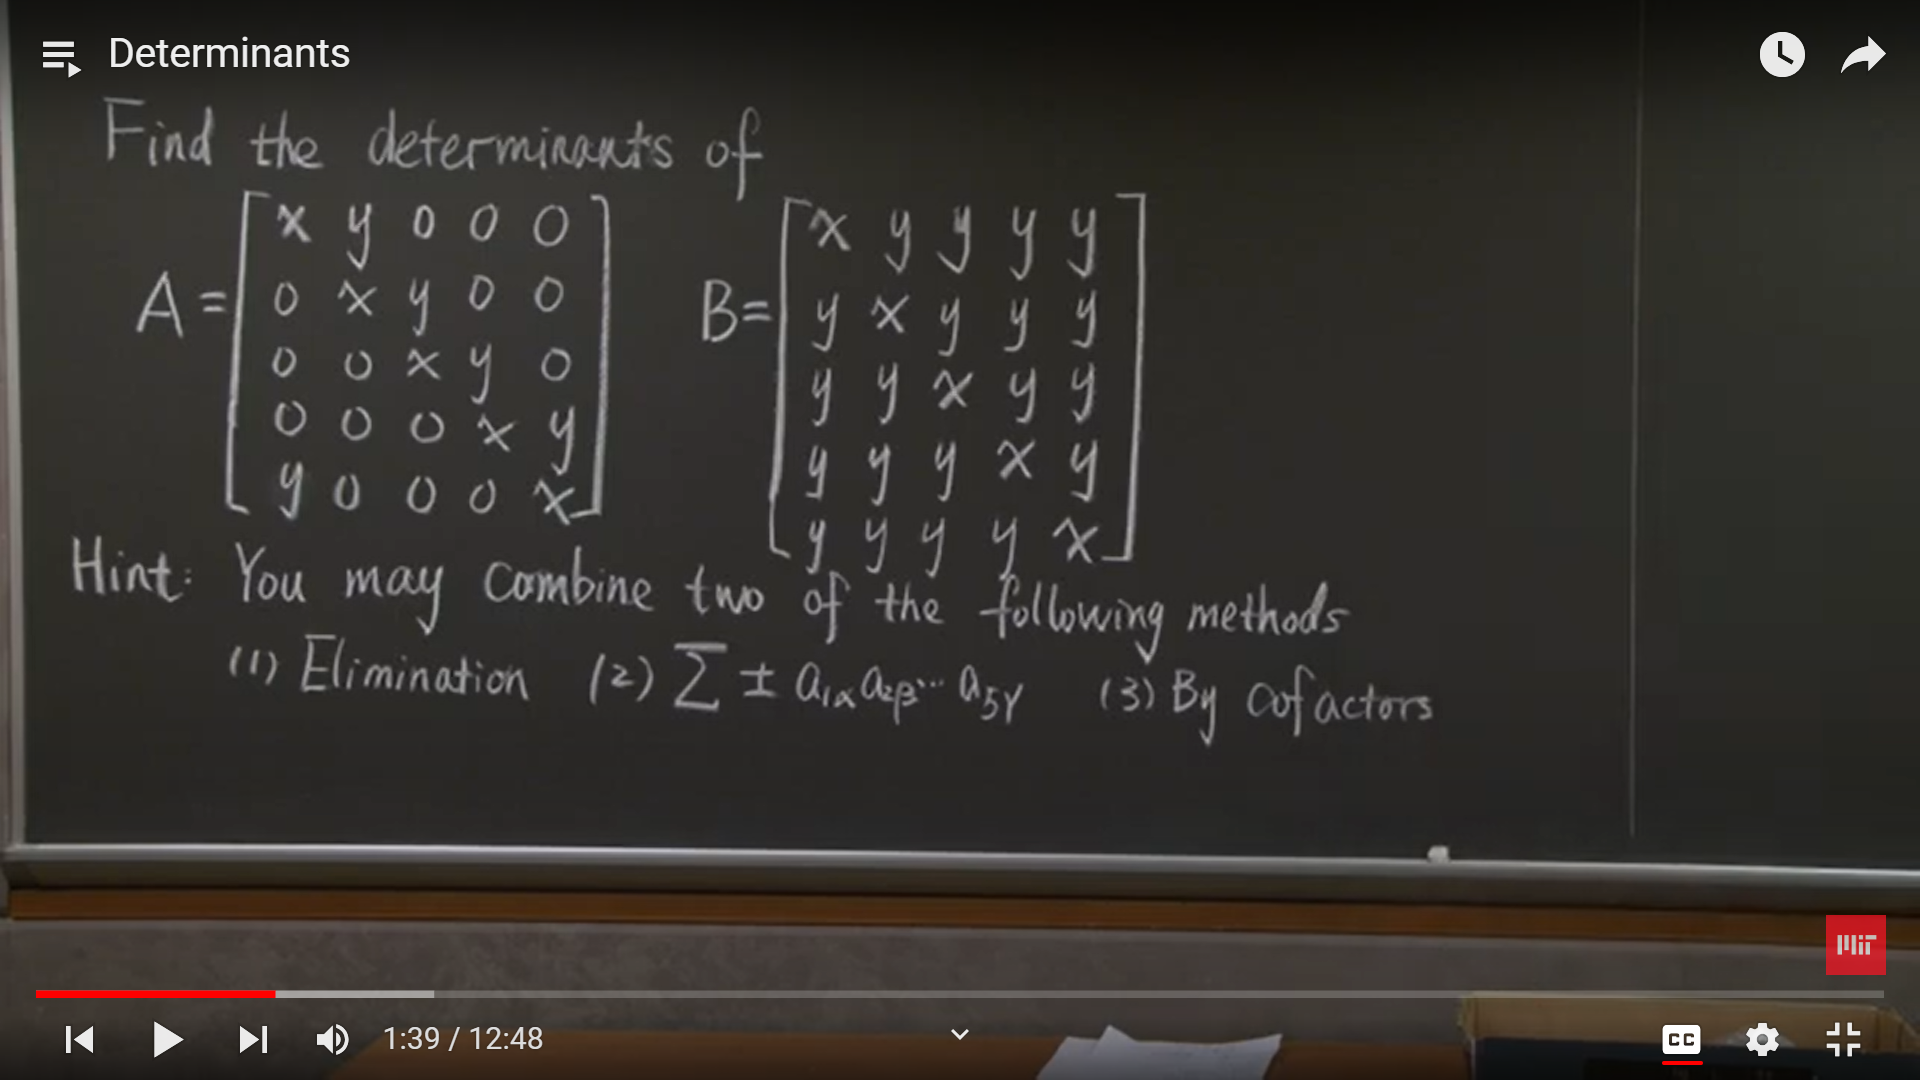 Determinants
Find the determinants of
A = [ x y 0 0 0
0 x y 0 0
0 0 x y 0
0 0 0 x y
y 0 0 0 x ]
B = [ x y y y y
y x y y y
y y x y y
y y y x y
y y y y x ]
Hint: You may combine two of the following methods
(1) Elimination (2) ∑ ± a₁α a₂β ... a₅γ (3) By cofactors
MIT
1:39 / 12:48
CC